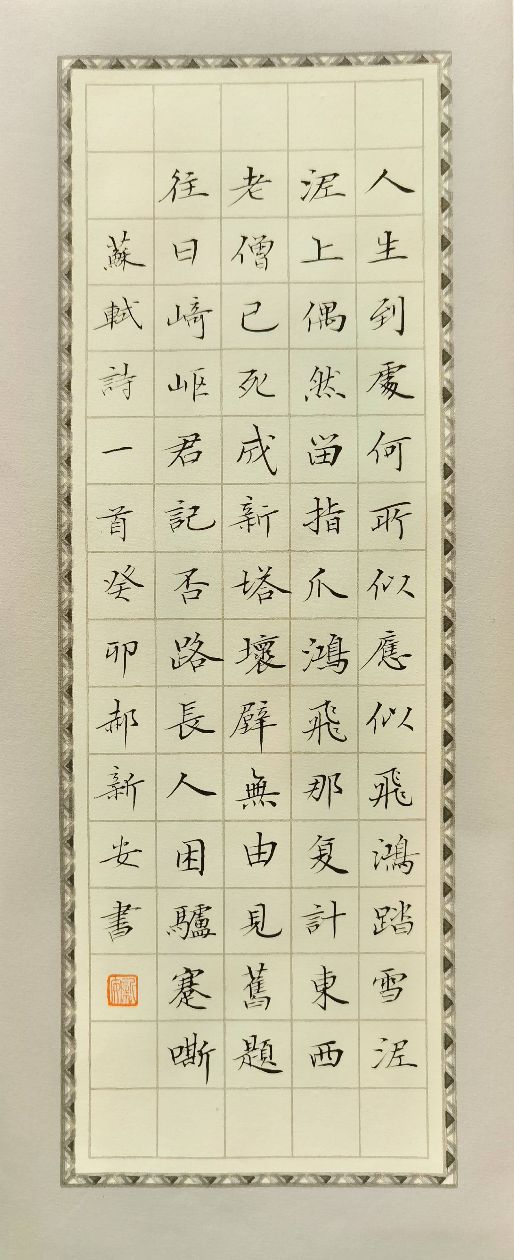 人生到處何所似應似飛鴻踏雪泥
泥上偶然留指爪鴻飛那复計東西
老僧已死成新塔壞壁無由見舊題
往日崎岖君記否路長人困驢蹇嘶
蘇軾詩一首癸卯郝新安書